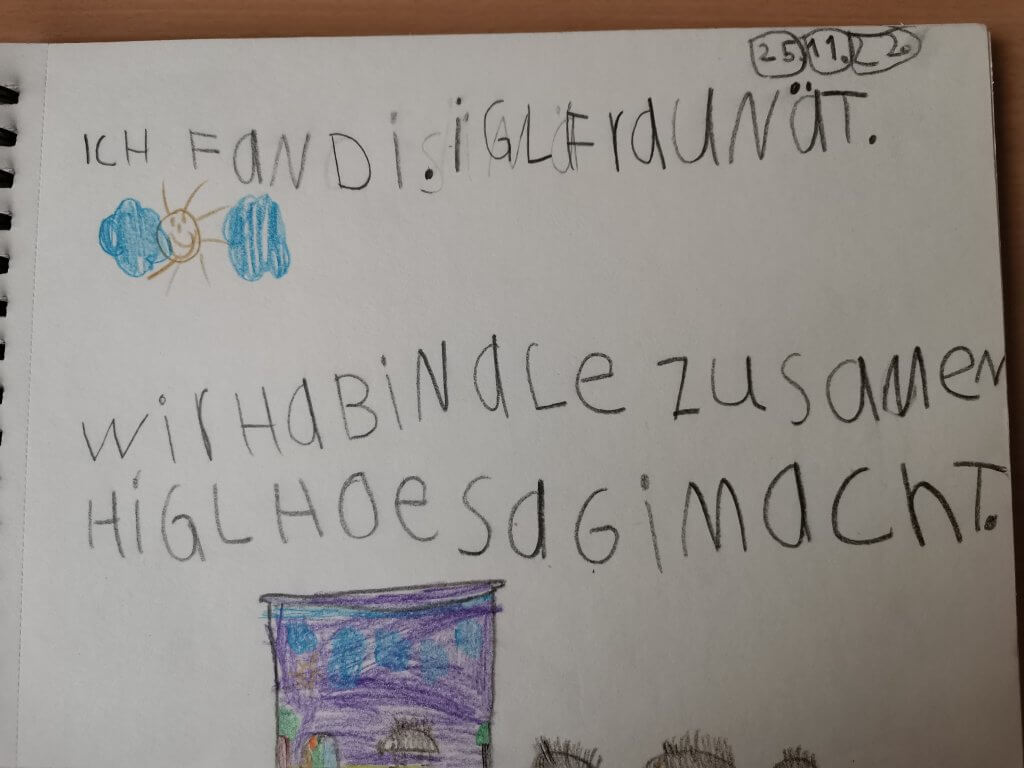 25.11.22.
ICH FAND i. iGLFraU NäT.
WirHaBiN aLe ZUSaMeN
HiGLHOeSa GiMaCHT.